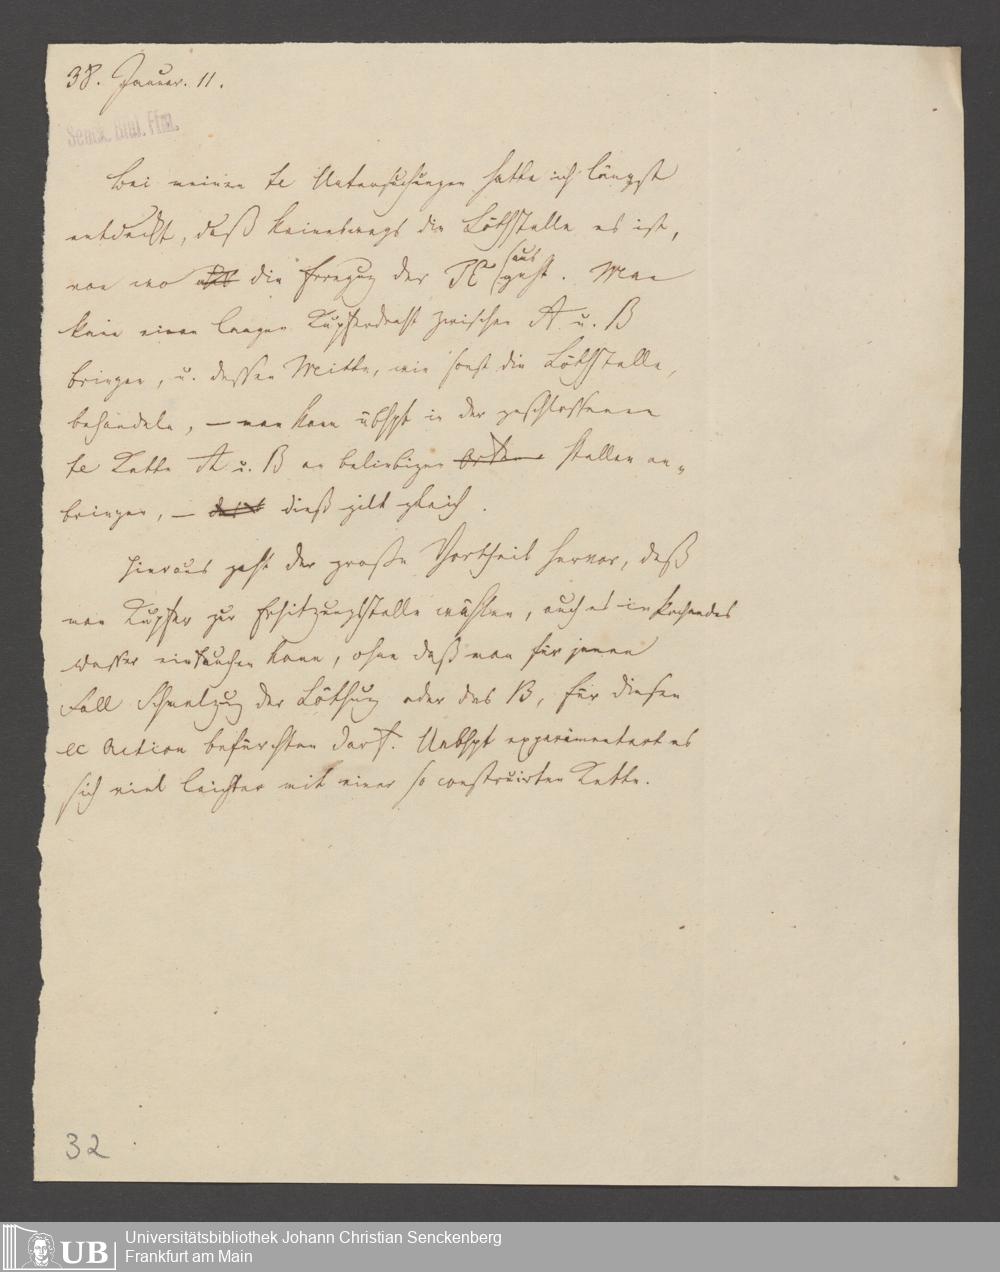 38. Januar. 11.
Senck. Bibl. Ffm.
Bei meinen te Untersuchungen hatte ich längst
entdeckt, daß keineswegs die Löthstelle es ist,
von wo die Erregug der TE ausgeht. Man
kann einen langen Kupferdraht zwischen A u. B
bringen, u. dessen Mitte, wie sonst die Löthstelle,
behandeln, – man kann übhpt in der geschlossenen
te Kette A u. B an beliebigen Stellen an„
bringen, – dieß gilt gleich.
Hieraus geht der große Vortheil hervor, daß
man Kupfer zur Erhitzungsstelle wählen, auch es in kochendes
Wasser eintauchen kann, ohne daß man für jenen
Fall Schmelzug der Löthug oder des B, für diesen
ec Action befürchten darf. Uebhpt experimentert es
sich viel leichter mit einer so construirten Kette.
32
UB
Universitätsbibliothek Johann Christian Senckenberg
Frankfurt am Main